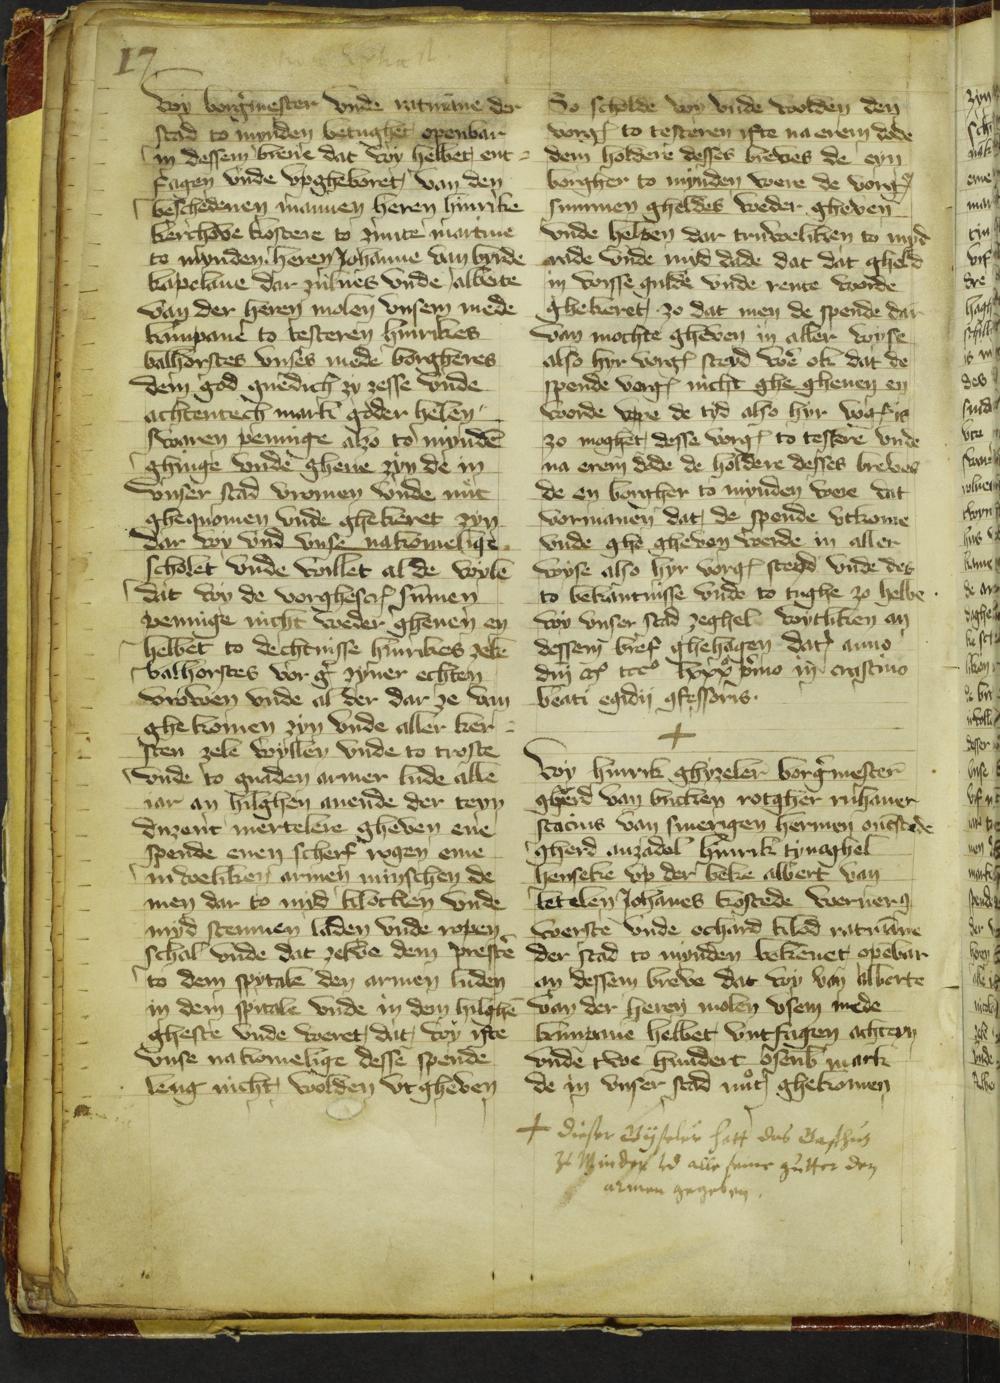 17
Wy borgermester vnde ratmāne der
stad to mynden betughet openbar
in dessem breue dat wy hebbet ent=
fagen vnde vpgheboret van den
beschedenen mannen heren hinrike
kerchove kostere to zunte martine
to mynden heren Johanne van bynde
kapelane dar zulues vnde alberte
van der heren molen vnsem mede
kūmpane to testeren hinrikes
balhorstes vnses mede borgheres
dem god gnedich zy zesse vnde
achtentech mark goder helen
swaren pennige alzo to myndē
ghinge vnde gheue zyn de in
vnser stad vromen vnde nůt
ghequomen vnde ghekeret zyn
dar wy vnd vnse nakomelīge
scholet vnde willet al de wylē
dat wy de vorghescr sūmen
pennige nicht weder gheuen en
hebbet to dechtnisse hinrikes zele
balhorstes vorg zyner echten
vrowen vnde al der dar ze van
ghekomen zyn vnde aller ker=
sten zele wyllen vnde to troste
vnde to gnaden armer lude alle
iar an hilghen auende der teyn
duzent mertelere gheven ene
spende enen scherf rogen eme
iuweliken armen minschen de
men dar to myd klocken vnde
myd stemmen luden vnde ropen
schal vnde dat zelve dem prestē
to dem spytale den armen luden
in dem spitale vnde in dem hilghē
gheste vnde weret dat wy ifte
vnse nakomelīge desse spende
leng nicht wolden vtgheven
So scholde wy vnde wolden den
vorg to testeren ifte na erem dode
dem holdere desses breves de eyn
borgher to mynden were de vorg
summen gheldes weder gheven
vnde helpen dar truweliken to myd
rade vnde myd dade dat dat gheld
in wisse gulde vnde rente worde
ghekeret zo dat men de spende dar
van mochte gheven in aller wyse
also hyr vorg steyd wē ok dat de
spende vorg nicht ghegheuen en
worde vppe de tyd also hyr vorg is
zo moghet desse vorg to testere vnde
na erem dode de holdere desses breves
de en borgher to mynden were dat
vormanen dat de spende vtkome
vnde ghegheven werde in aller
wyse also hyr vorg steyd vnde des
to bekantnisse vnde to tughe zo hebbe
wy vnser stad zeghel wytliken an
dessem bref ghehāgen dat anno
dm m ccc lxxx pmo in crastino
beati egidij gfessoris
+
Wy hinrik ghyzeler borgmester
gherd van bucken rotgher ruhauer
stacius van swerigen hermen
gherd hinrik tynaghel
henseke vp der beke albert van
letelen Johanes kostede werner
werste vnde echard klod ratmāne
der stad to mynden bekenet opēbar
an dessem breve dat wy van alberte
van der heren molen vsem mede
kūmpane hebbet vntfagen achteyn
vnde twe hundert osenb mark
de in vnser stad nůt ghekomen
+ dieser Gyseler hatt das Gasthus
zu Minden vnd alle seine gütter den
armen gegeben.